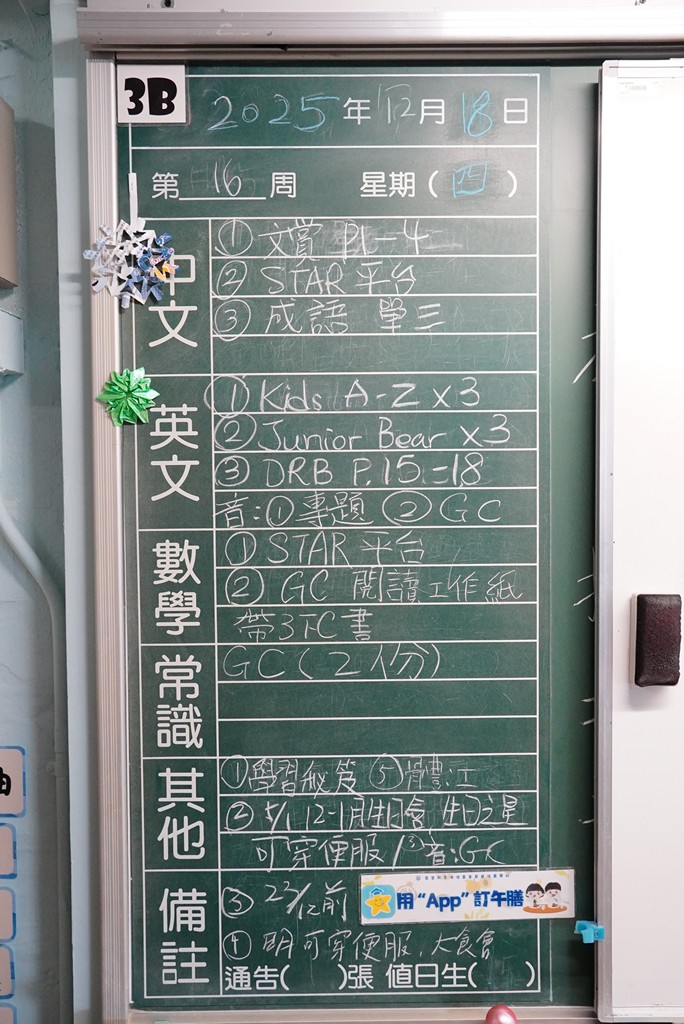 3B
2025年12月18日
第16周 星期(四)
中文
① 文賞 P1-4
② STAR平台
③ 成語 單三
英文
① Kids A-Z x3
② Junior Bear x3
③ DRB P.15-18
音:①專題 ② GC
數學
① STAR平台
② GC 閱讀工作紙
帶3下C書
常識
GC(2份)
其他
① 學習秘笈 ⑤
② 5/1 12-1月生日會 生日之星
可穿便服/ 音:GC
備註
③ 23/12前
用“App”訂午膳
④ 明可穿便服,大食會
通告( )張 值日生( )